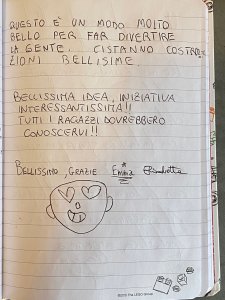 QUESTO È UN MODO MOLTO
BELLO PER FAR DIVERTIRE
LA GENTE. CI STANNO COSTRU-
ZIONI BELLISIME.
BELLISSIMA IDEA, INIZIATIVA
INTERESSANTISSIMA!!
TUTTI I RAGAZZI DOVREBBERO
CONOSCERVI!!
BELLISSIMO, GRAZIE Emma Elisabetta
©2015 The LEGO Group.